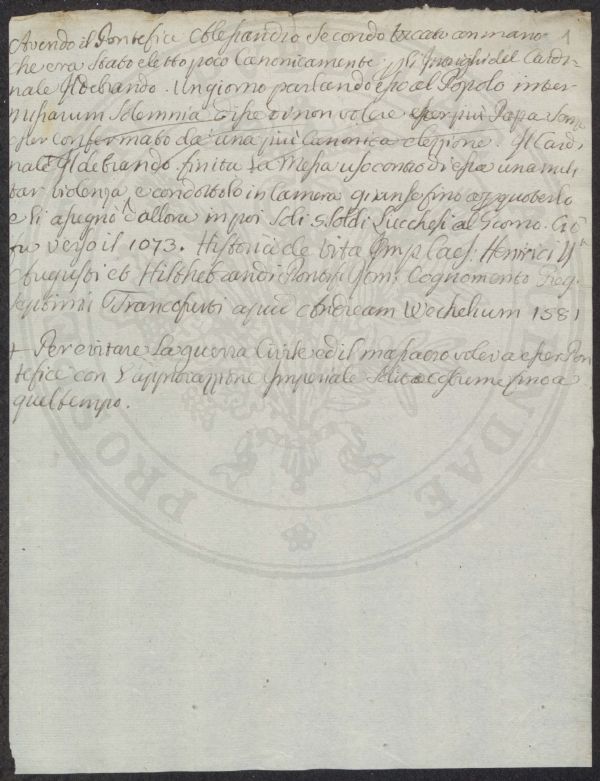 1
Avendo il Pontefice Alessandro Secondo toccato con mano
che era stato eletto poco Canonicamente gl'Intrighi del Cardi-
nale Ildebrando. Un giorno parlando esso al Popolo inter
missarum solemnia disse di non volere esser più Papa
esser confermato da una più Canonica elezione. Il Cardi-
nale Ildebrando finita la Messa usò contro di esso una mili
tar violenza, e condottolo in Camera giunse fino a percuoterlo
e li assegnò d'allora in poi soli 5 Soldi Lucchesi al Giorno. Ciò
fu verso il 1073. Historia de Vita Imp. Caes. Henrici
Augusti et Hilthebrandi Pontif. Rom. Cognomento Greg.
Septimi Francofurti apud Andream Wechelium 1581
+ Per evitare la guerra Civile ed il massacro voleva esser Pon
tefice con l'approvazione Imperiale solito costume fino a
quel tempo.
PROS